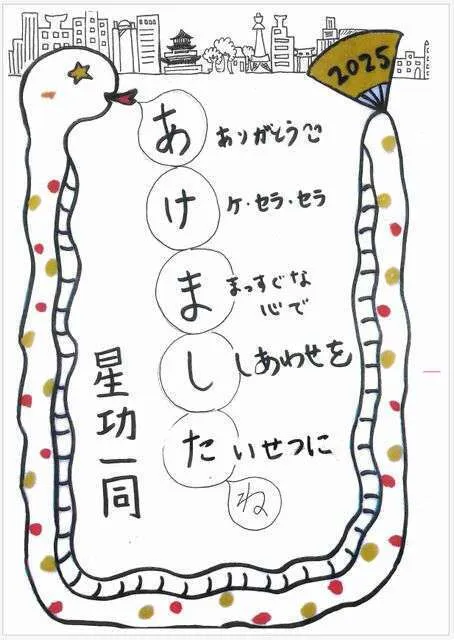 2025
あ ありがとう
け ケ・セラ・セラ
ま まっすぐな
心で
し しあわせを
た いせつに
ね
星功一同